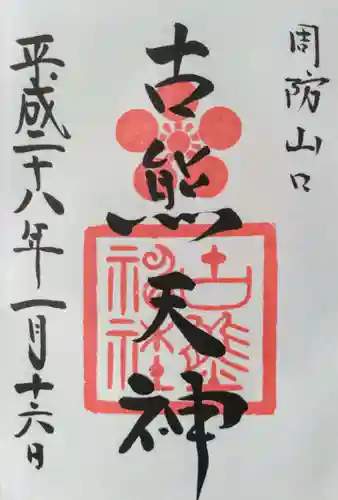 周防山口
古熊天神
古熊神社
平成二十八年一月十六日